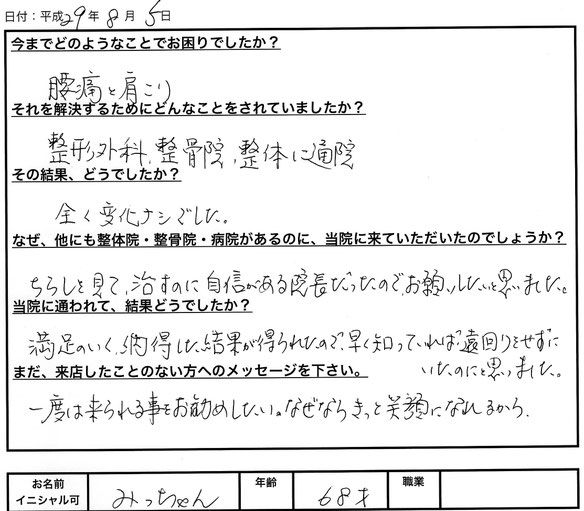 日付：平成29年8月5日
今までどのようなことでお困りでしたか？
腰痛と肩こり
それを解決するためにどんなことをされていましたか？
整形外科、整骨院、整体に通院
その結果、どうでしたか？
全く変化ナシでした。
なぜ、他にも整体院・整骨院・病院があるのに、当院に来ていただいたのでしょうか？
ちらしを見て、治すのに自信がある院長だったので、お願いしたいと思いました。
当院に通われて、結果どうでしたか？
満足のいく、納得した結果が得られたので、早く知っていれば遠回りをせずに
いたのにと思いました。
まだ、来店したことのない方へのメッセージを下さい。
一度は来られる事をお勧めしたい。なぜならきっと笑顔になれるから。
お名前 イニシャル可 みっちゃん 年齢 68才 職業